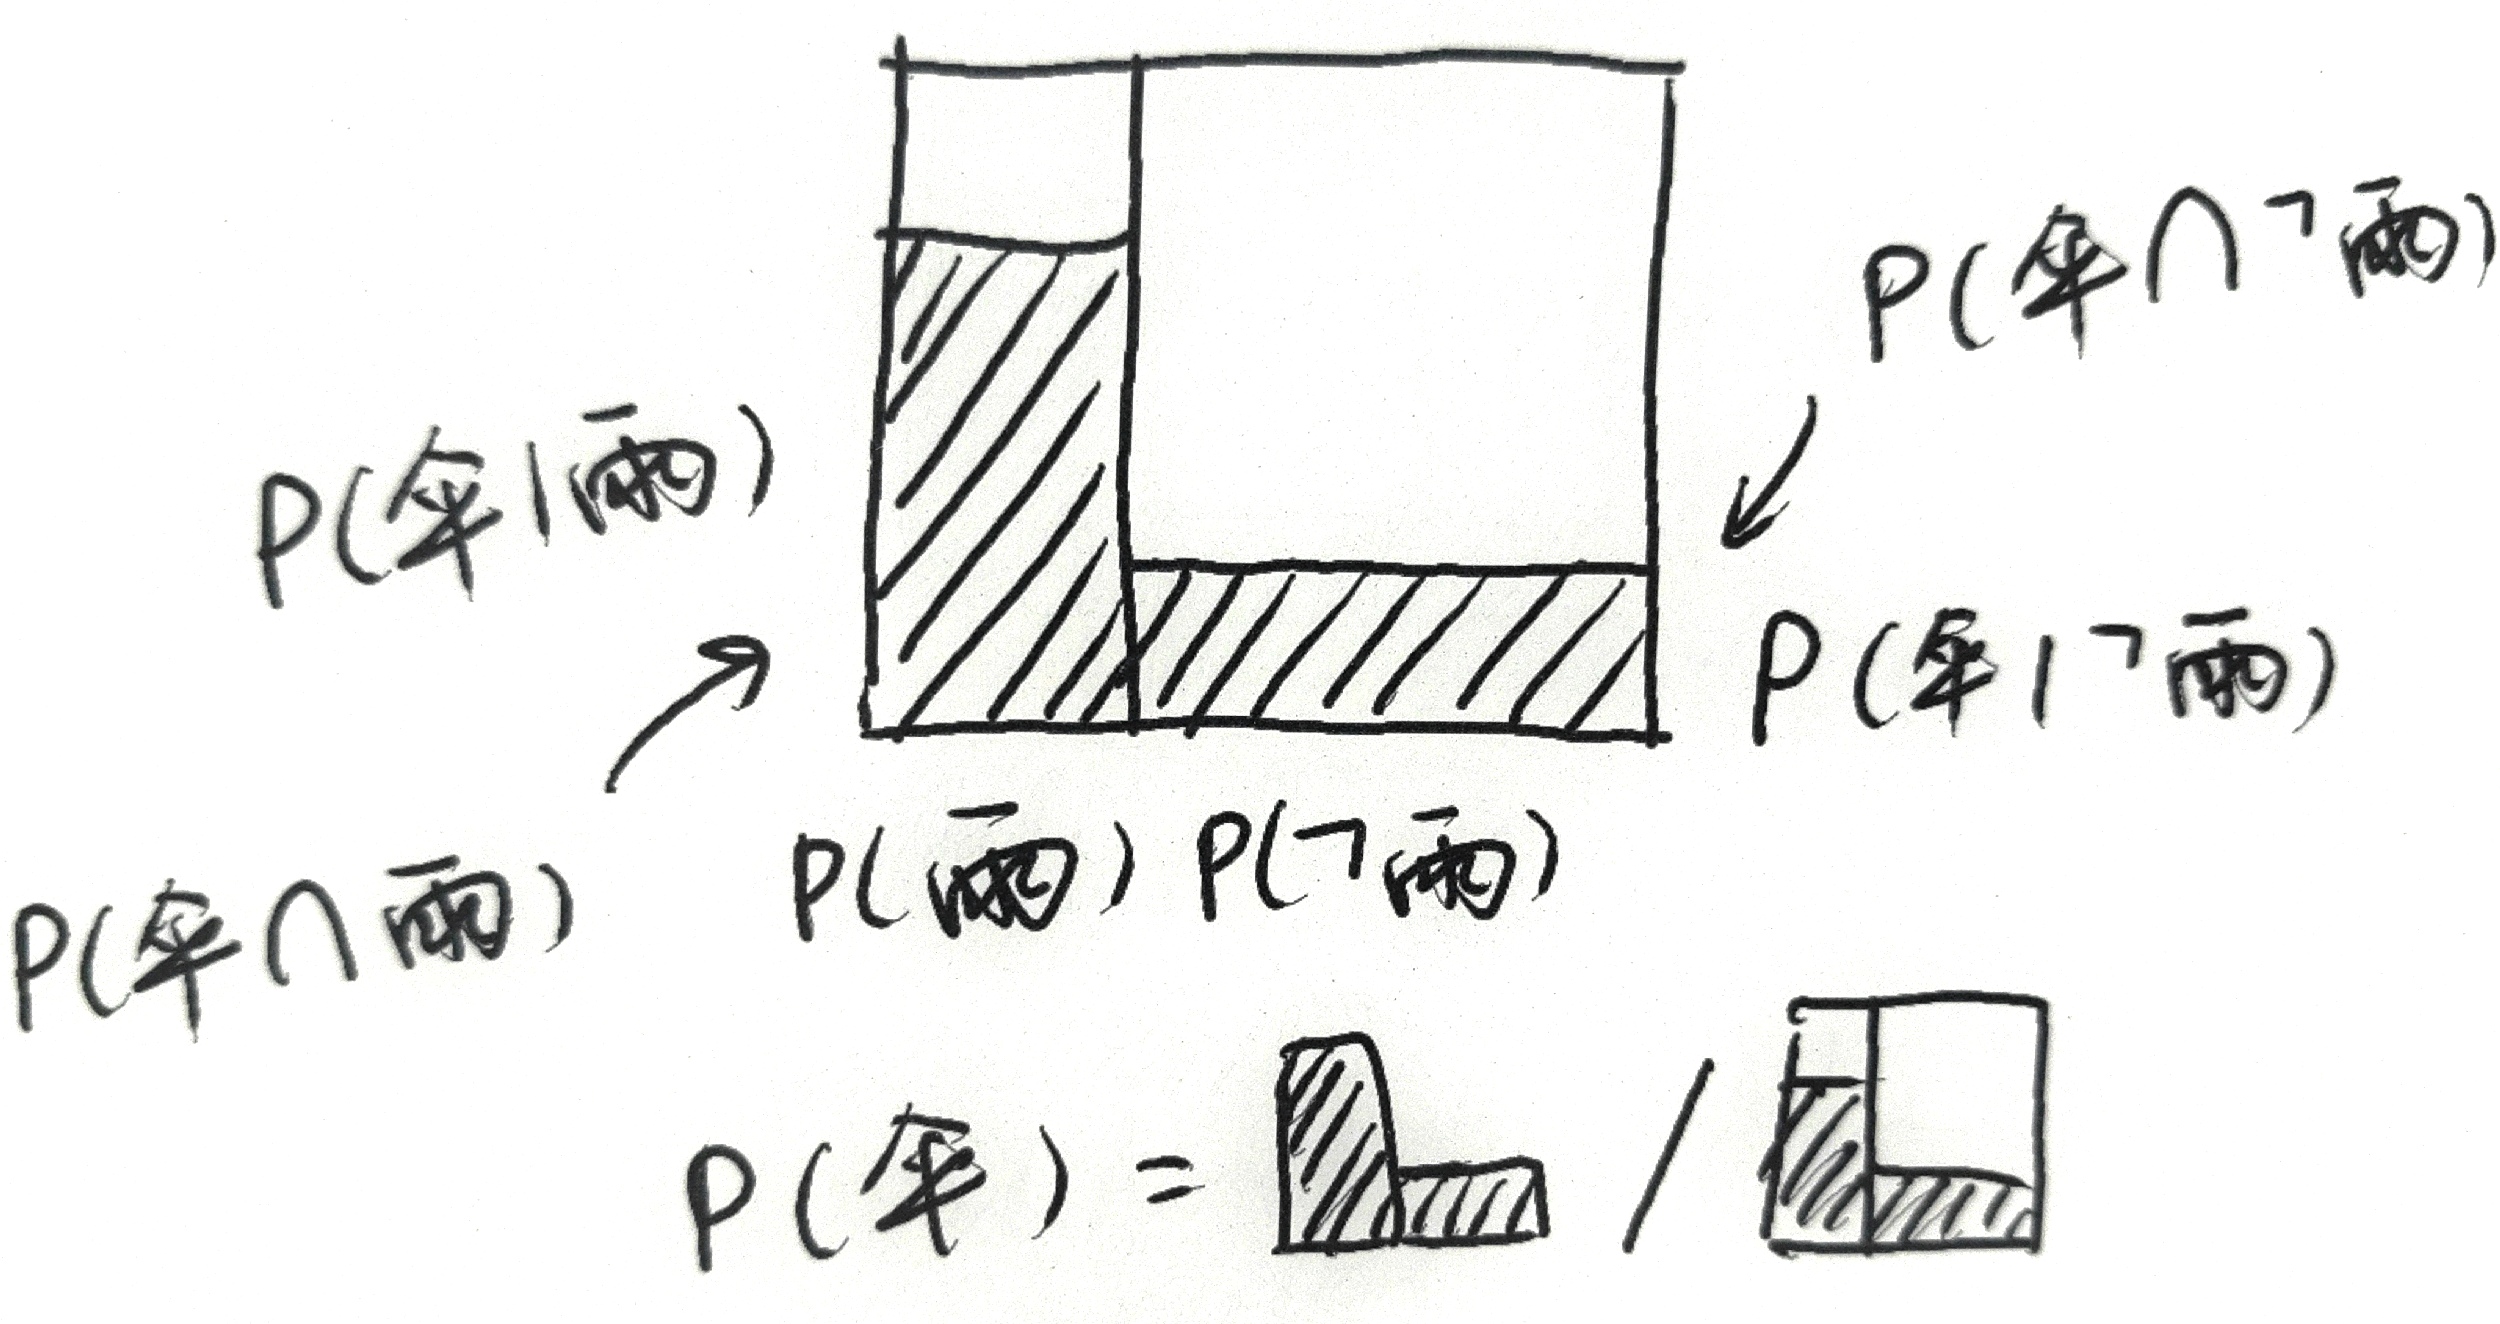 P(伞∩¬雨)
P(伞|雨)
P(伞|¬雨)
P(雨) P(¬雨)
P(伞∩雨)
P(伞) = /